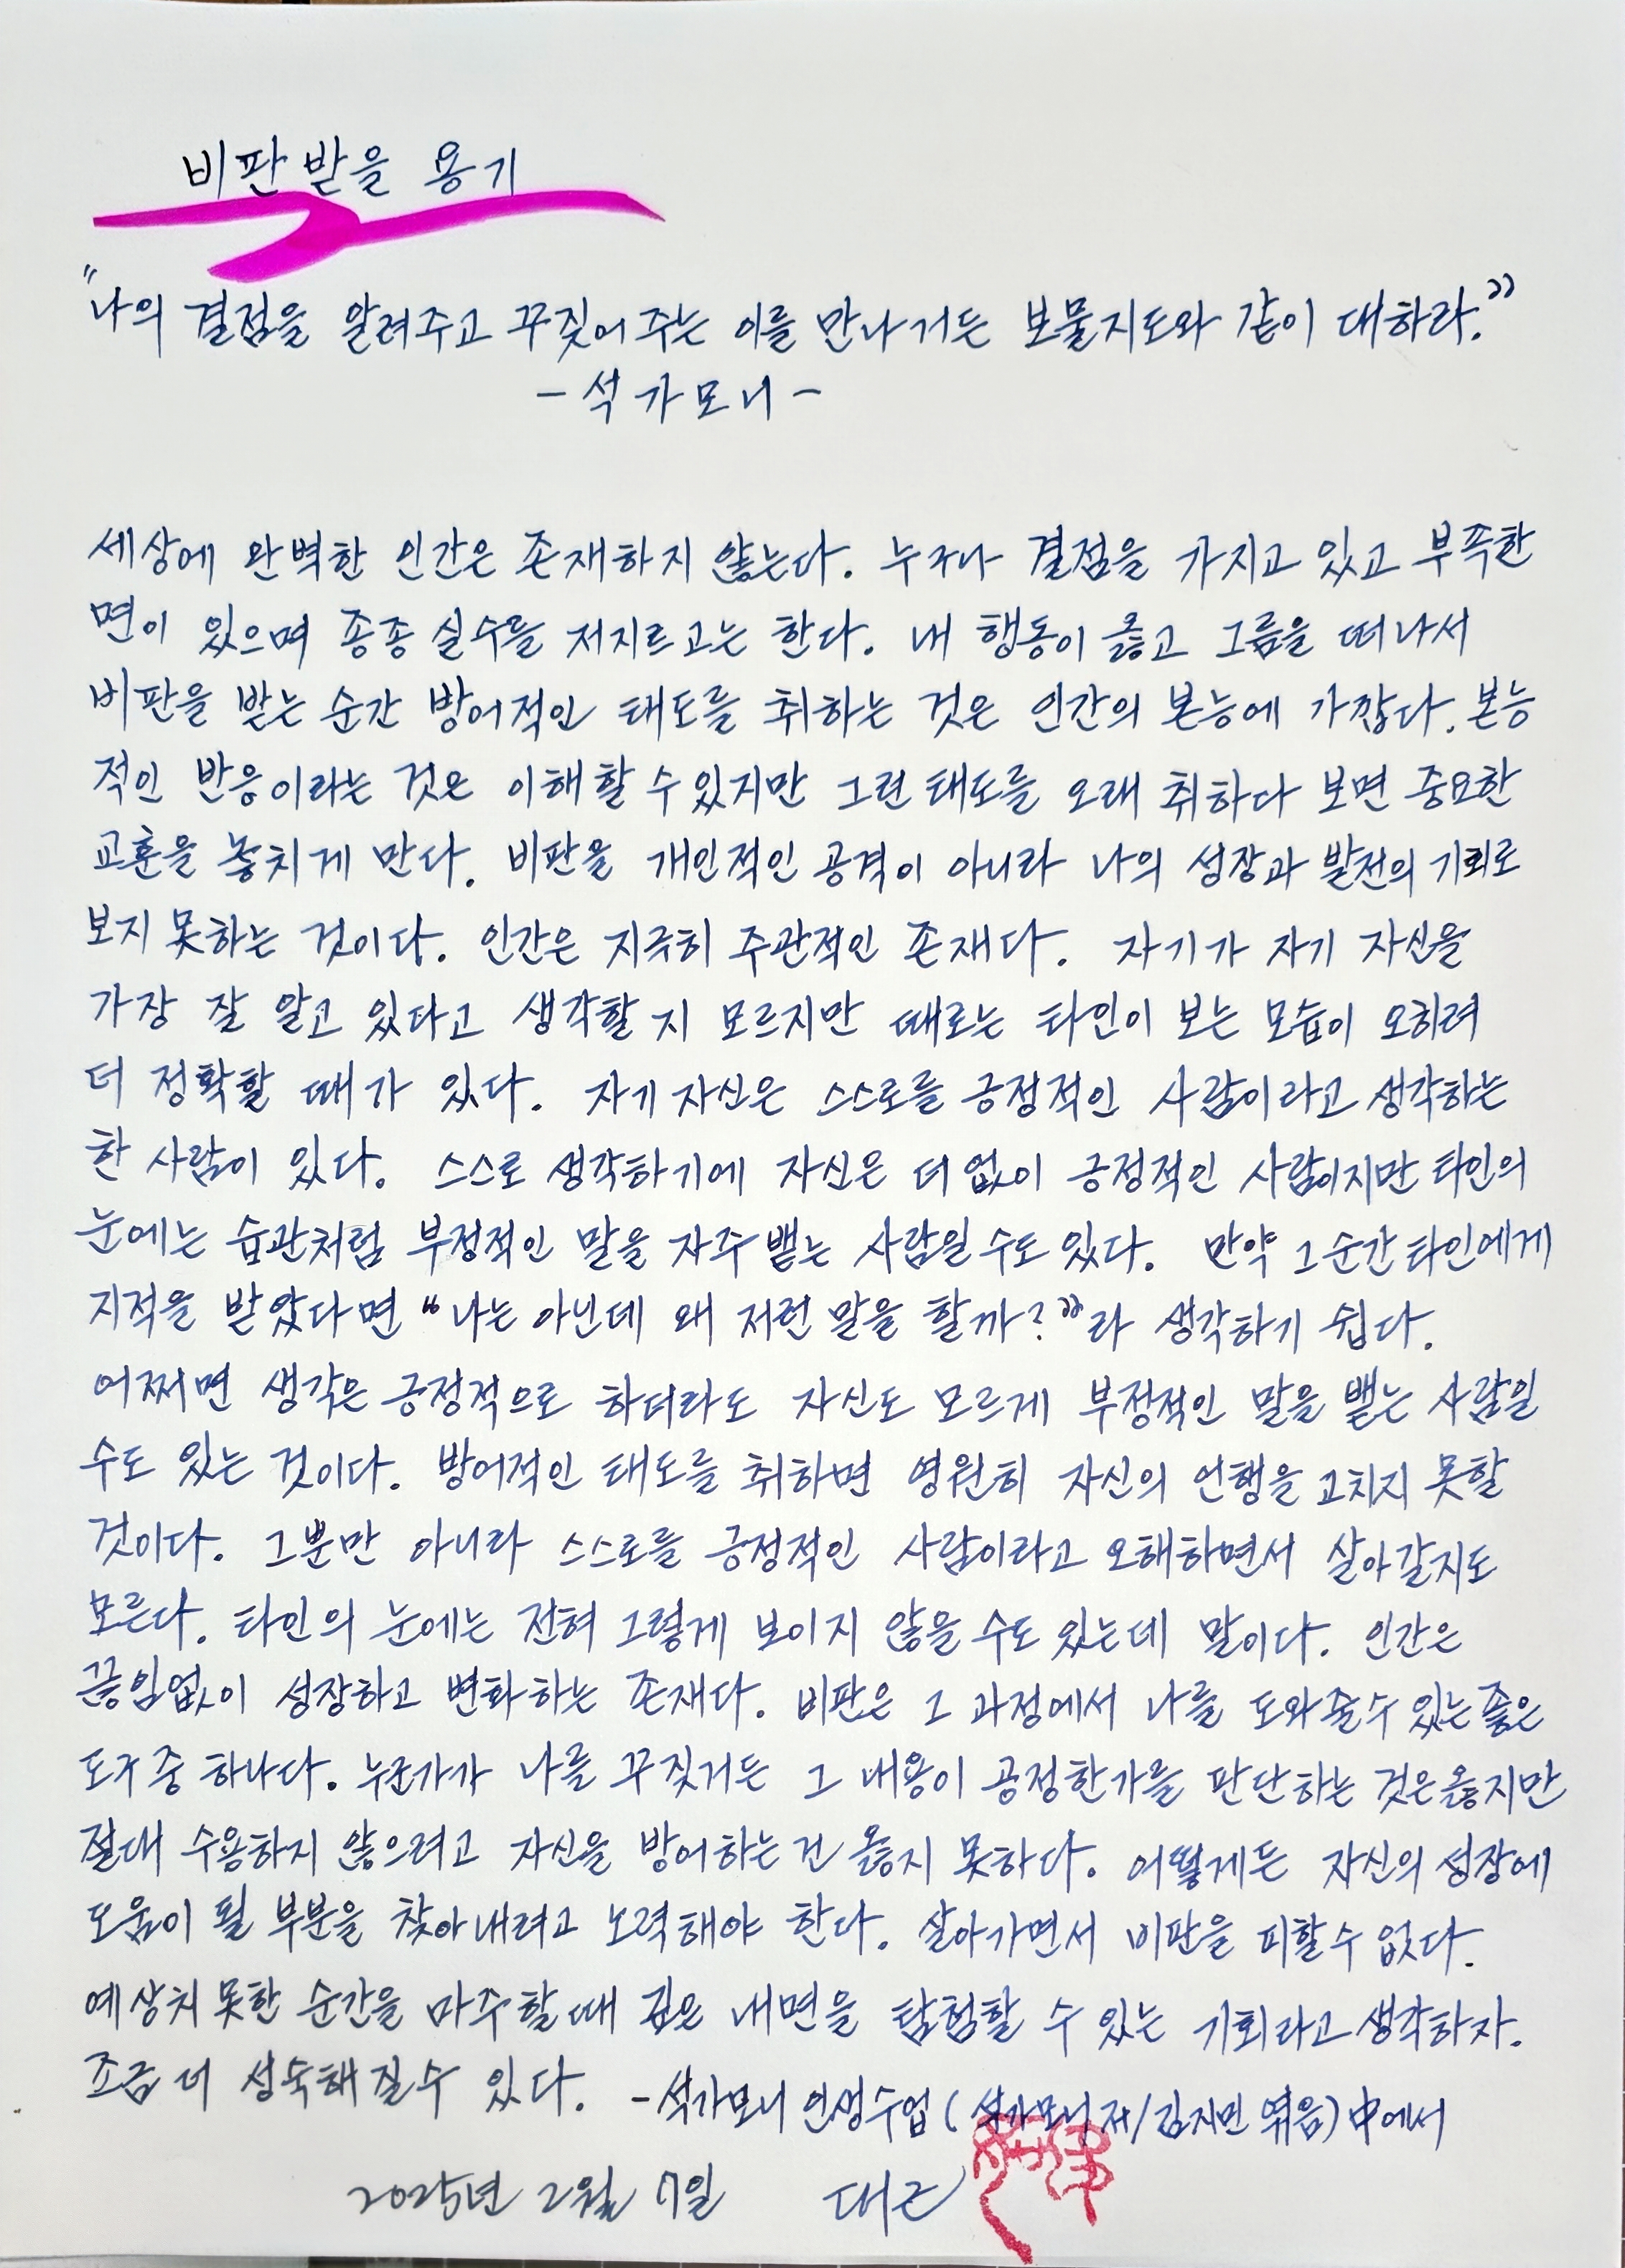 비판 받을 용기
"나의 결점을 알려주고 꾸짖어 주는 이를 만나거든 보물지도와 같이 대하라."
- 석가모니 -
세상에 완벽한 인간은 존재하지 않는다. 누구나 결점을 가지고 있고 부족한
면이 있으며 종종 실수를 저지르고는 한다. 내 행동이 옳고 그름을 떠나서
비판을 받는 순간 방어적인 태도를 취하는 것은 인간의 본능에 가깝다. 본능
적인 반응이라는 것은 이해할 수 있지만 그런 태도를 오래 취하다 보면 중요한
교훈을 놓치게 만다. 비판을 개인적인 공격이 아니라 나의 성장과 발전의 기회로
보지 못하는 것이다. 인간은 지극히 주관적인 존재다. 자기가 자기 자신을
가장 잘 알고 있다고 생각할 지 모르지만 때로는 타인이 보는 모습이 오히려
더 정확할 때가 있다. 자기 자신은 스스로를 긍정적인 사람이라고 생각하는
한 사람이 있다. 스스로 생각하기에 자신은 더 없이 긍정적인 사람이지만 타인의
눈에는 습관처럼 부정적인 말을 자주 뱉는 사람일 수도 있다. 만약 그 순간 타인에게
지적을 받았다면 "나는 아닌데 왜 저런 말을 할까?"라 생각하기 쉽다.
어쩌면 생각은 긍정적으로 하더라도 자신도 모르게 부정적인 말을 뱉는 사람일
수도 있는 것이다. 방어적인 태도를 취하면 영원히 자신의 언행을 고치지 못할
것이다. 그뿐만 아니라 스스로를 긍정적인 사람이라고 오해하면서 살아갈지도
모른다. 타인의 눈에는 전혀 그렇게 보이지 않을 수도 있는데 말이다. 인간은
끊임없이 성장하고 변화하는 존재다. 비판은 그 과정에서 나를 도와줄 수 있는 좋은
도구 중 하나다. 누군가가 나를 꾸짖거든 그 내용이 공정한가를 판단하는 것은 옳지만
절대 수용하지 않으려고 자신을 방어하는 건 옳지 못하다. 어떻게든 자신의 성장에
도움이 될 부분을 찾아내려고 노력해야 한다. 살아가면서 비판을 피할 수 없다.
예상치 못한 순간을 마주할 때 깊은 내면을 탐험할 수 있는 기회라고 생각하자.
조금 더 성숙해질 수 있다. - 석가모니 인생수업 (석가모니 저/김지민 엮음) 中에서
2025년 2월 7일 대근